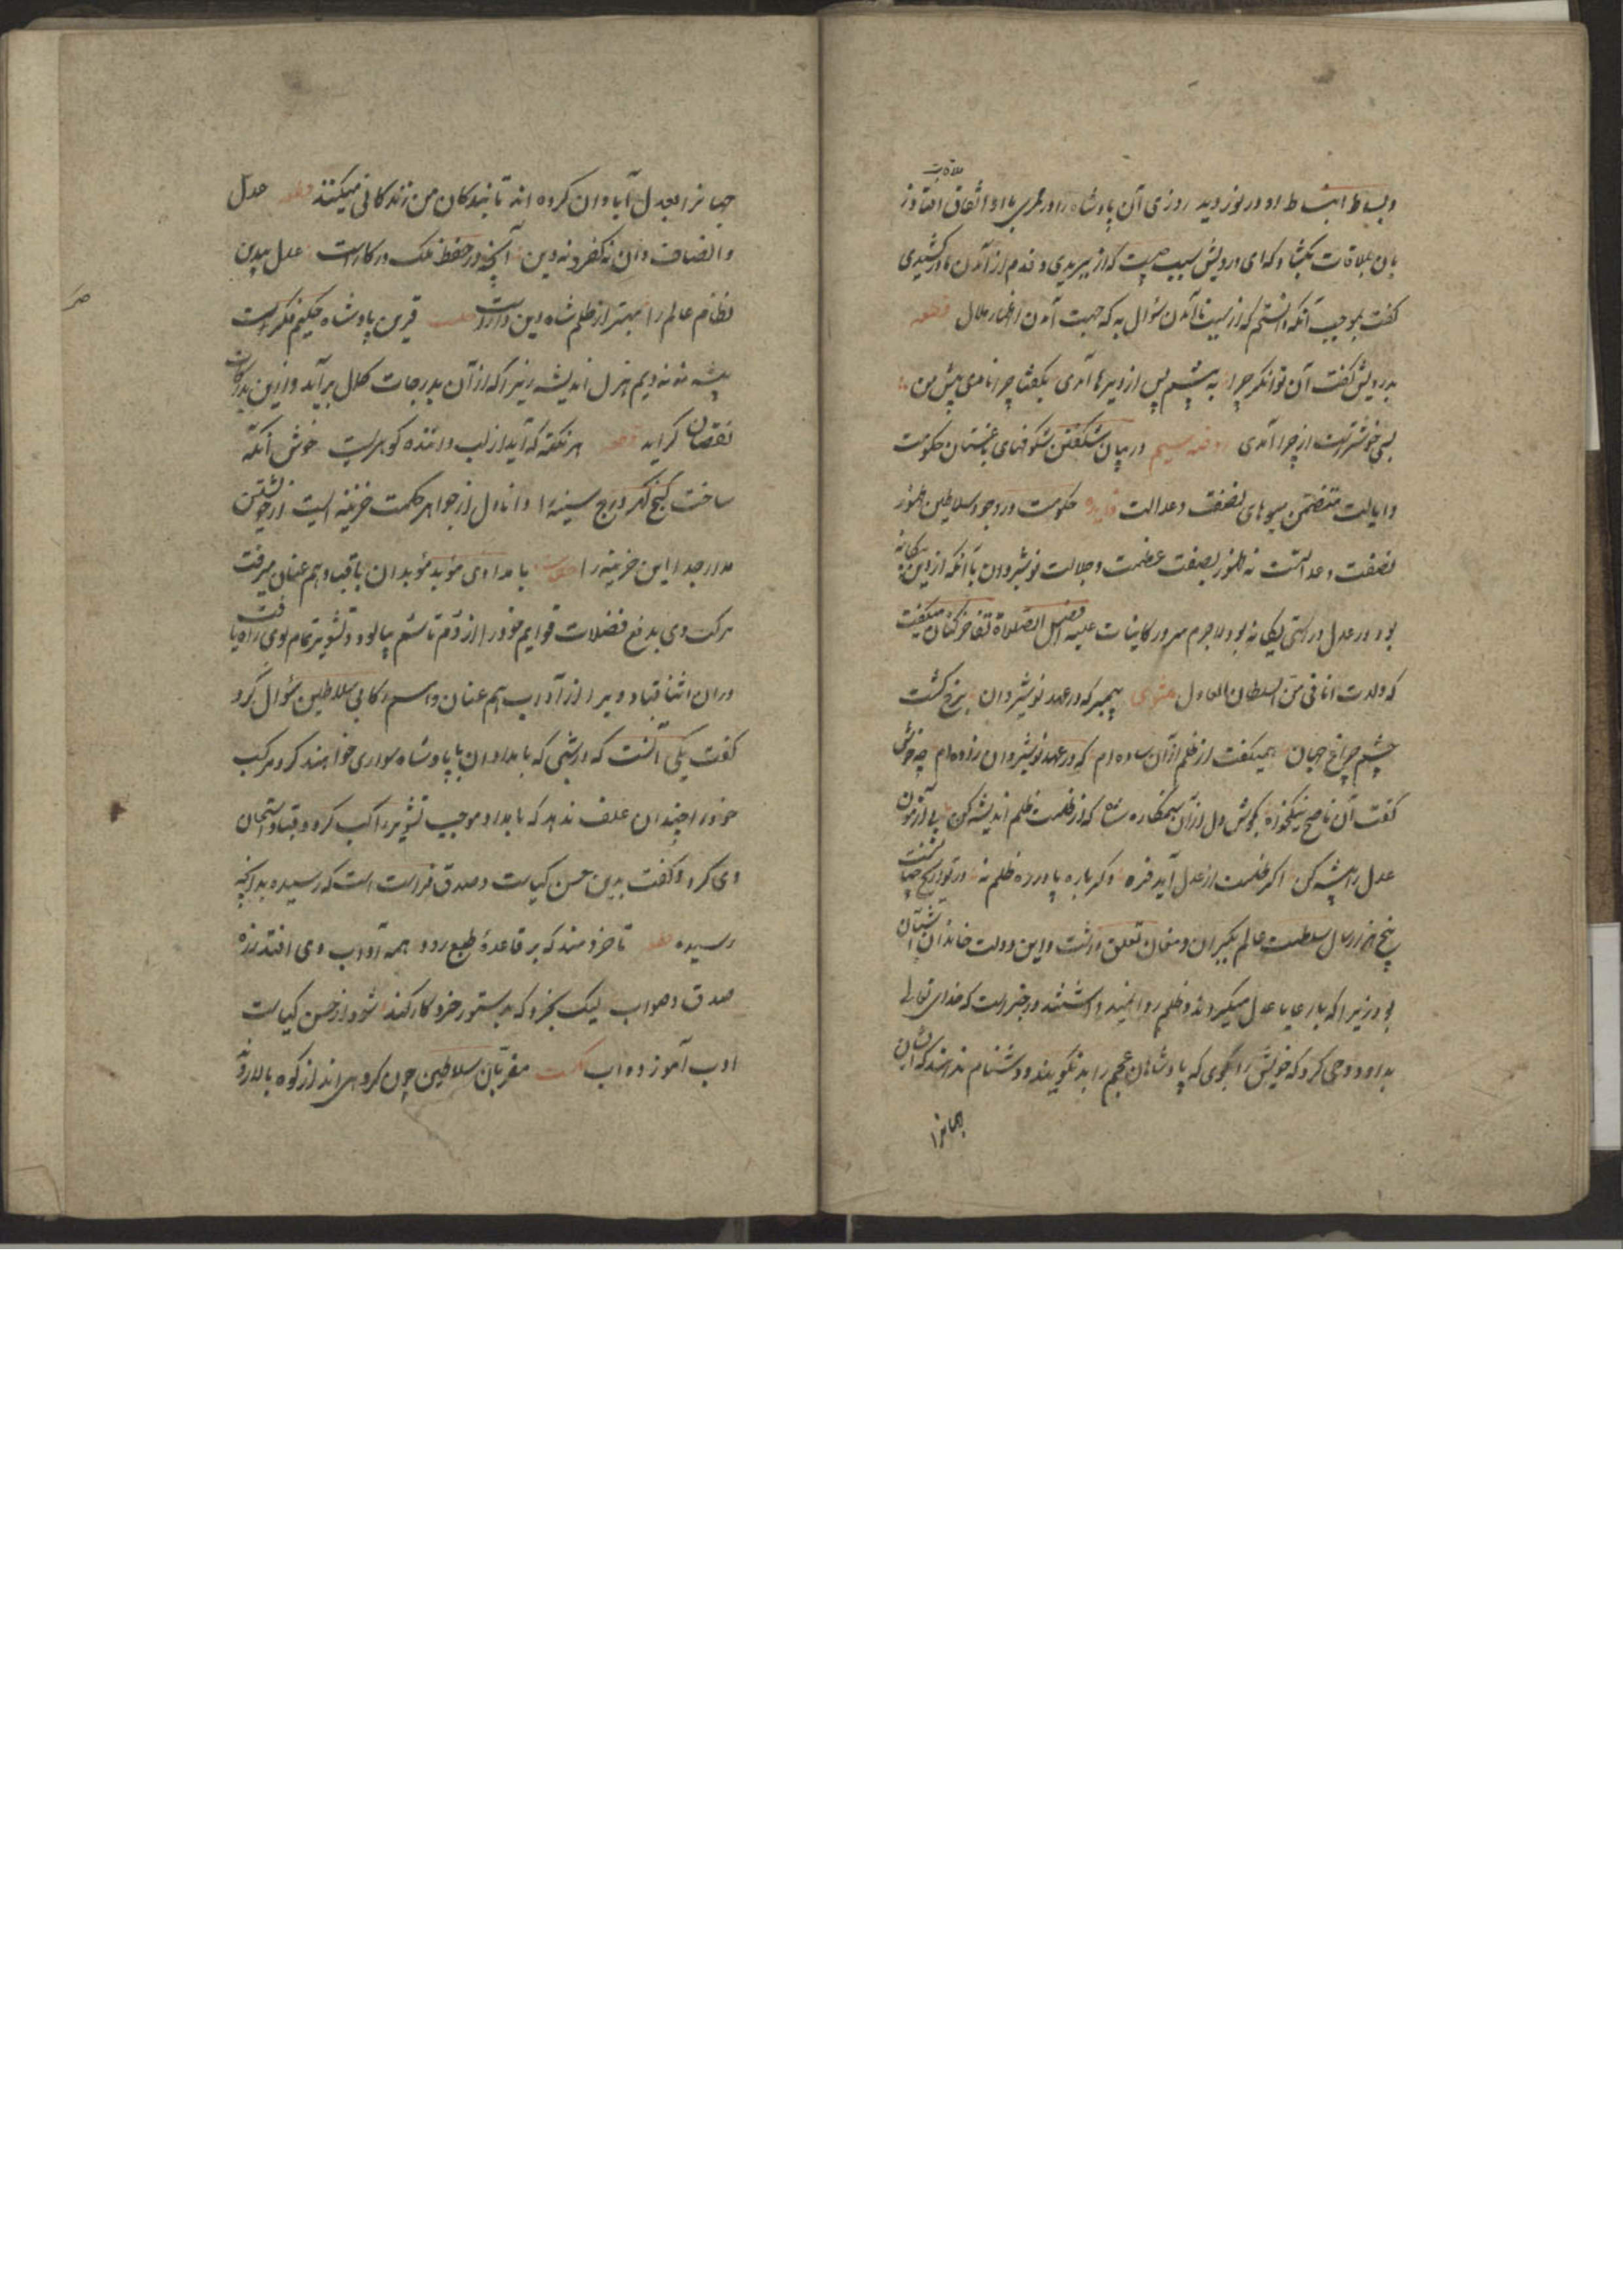 ملاقات
و بساط انبساط او در نوردید روزی آن پادشاه را در ممری با او اتفاق افتاد ز
بان ملاقات بگشاد که ای درویش سبب چیست که از ما ببریدی و قدم از آمدن ما درکشیدی
گفت بموجب آنکه دانستم که از سبب ناآمدن سؤال به که جهت آمدن اظهار ملال قطعه
بدرویش گفت آن توانگر چرا به پیشم پس از دیرها آمدی بگفتا چرا نامدی پیش من
بسی خوشترست از چرا آمدی روضه سیم در بیان شکفتن شکوفهای باغستان حکومت
و ایالت متضمن میوهای نصفت و عدالت فایده حکمت در وجود سلاطین ظهور
نصفت و عدالتست نه ظهور بصفت عظمت و جلالت نوشیروان با آنکه از دین بیگانه
بود در عدل و راستی یگانه بود لاجرم سرور کاینات علیه افضل الصلاة تفاخرکنان میگفت
که ولدت انا فی زمن السلطان العادل مثنوی پیمبر که در عهد نوشیروان برخ گشت
چشم چراغ جهان همیگفت از ظلم ازآن ساده ام که در عهد نوشیروان زاده ام چه خوش
گفت آن ناصح نیکخواه بگوش دل آن ستمکاره شاه که از ظلمت ظلم اندیشه کن پی آزمون
عدل را پیشه کن اگر ظلمت از عدل آید فره دگرباره پا در ره ظلم نه در تواریخ چنانست
پنج هزار سال سلطنت عالم بگبران و مغان تعلق داشت و این دولت در خاندان ایشان
بود زیرا که با رعایا عدل میکردند و ظلم روا نمیداشتند در خبرست که خدای تعالی
بداود وحی کرد که خویش را بگوی که پادشاهان عجم را بد نگویند و دشنام ندهند که ایشان
جهانرا
جهانرا بعدل آبادان کرده اند تا بندگان من زندگانی میکنند قطعه عدل
و انصاف دان نه کفر و نه دین آنچه در حفظ ملک در کارست عدل بیدین
نظام عالم را بهتر از ظلم شاه دین دارست حکمت قرین پادشاه حکیم فکرست
پیشه نه ندیم هزل اندیشه زیرا که از آن بدرجات کمال برآید و ازین بدرکات
نقصان گراید قطعه هر نکته که آید از لب داننده گوهریست خوش آنکه
ساخت گنج گهر درج سینه را دانا دل از جواهر حکمت خزینه ایست از خویشتن
مدار جدا این خزینه را حکایت بامدادی موبد موبدان با قباد هم عنان میرفت
مرکب وی بدفع فضلات قوایم خود را از دم تا سم بیالود و تشویر تمام بوی راه یافت
دران اثنا قباد ویرا از آداب هم عنان و هم رکابی سلاطین سؤال کرد
گفت یکی آنست که در شبی که بامدادان با پادشاه سواری خواهند کرد مرکب
خود را چندان علف ندهد که بامداد موجب تشویر راکب گردد قباد استحسان
وی کرد و گفت بدین حسن کیاست و صدق فراست است که رسیده بدانچه
رسیده قطعه تا خردمند که بر قاعده طبع رود همه آداب وی افتد ز ره
صدق و صواب لیک بخرد که بدستور خرد کار کند شود از حسن کیاست
ادب آموز دواب حکمت مقربان سلاطین چون گروهی اند از کوه بالا رونده